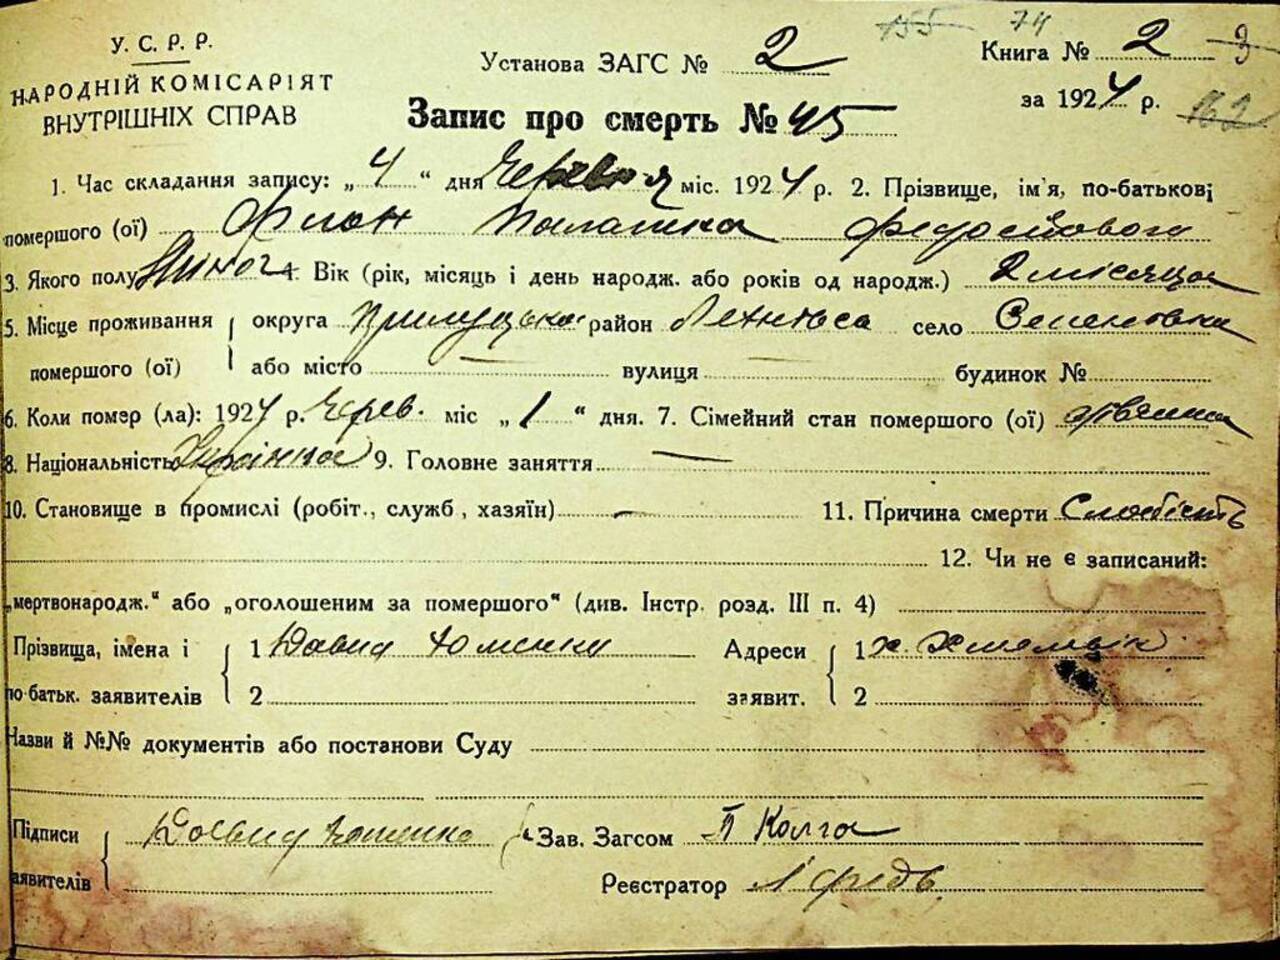 У. С. Р. Р.
НАРОДНІЙ КОМІСАРІЯТ
ВНУТРІШНІХ СПРАВ
155 74
Установа ЗАГС № 2
Книга № 2 3
за 1924 р. 162
Запис про смерть № 45
1. Час складання запису: „ 4 “ дня Червня міс. 1924 р. 2. Прізвище, ім'я, по-батькові
помершого (ої) Палашка
3. Якого полу 4. Вік (рік, місяць і день народж. або років од народж.) 2 місяца
5. Місце проживання округа Прилуцька район село Семеновка
помершого (ої) або місто — вулиця — будинок №
6. Коли помер (ла): 1924 р. Черв. міс „ 1 “ дня. 7. Сімейний стан помершого (ої)
8. Національність Українка 9. Головне заняття —
10. Становище в промислі (робіт., служб, хазяїн) — 11. Причина смерти Слабість
12. Чи не є записаний:
„мертвонародж.“ або „оголошеним за помершого“ (див. Інстр. розд. III п. 4)
Прізвища, імена і 1 Давид Адреси 1 х.
по батьк. заявителів 2 заявит. 2
Назви й №№ документів або постанови Суду
Підписи Давид Зав. Загсом П Колга
заявителів Реєстратор